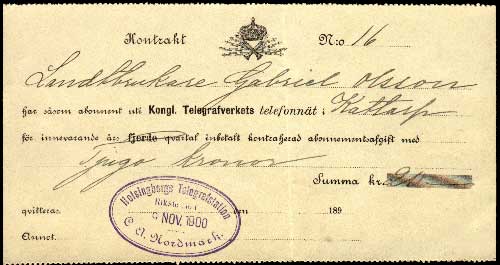 Kontrakt N:o 16
Landtbrukare Gabriel Olsson
har såsom abonnent uti Kongl. Telegrafverkets telefonnät i Kattarp
för innevarande års fjerde qvartal inbetalt kontraherad abonnementsafgift med
Tjugo kronor
Summa kr.
qvitteras den 189
Annot.
Helsingborgs Telegrafstation
Rikstelefon
NOV. 1900
A. Nordmark.